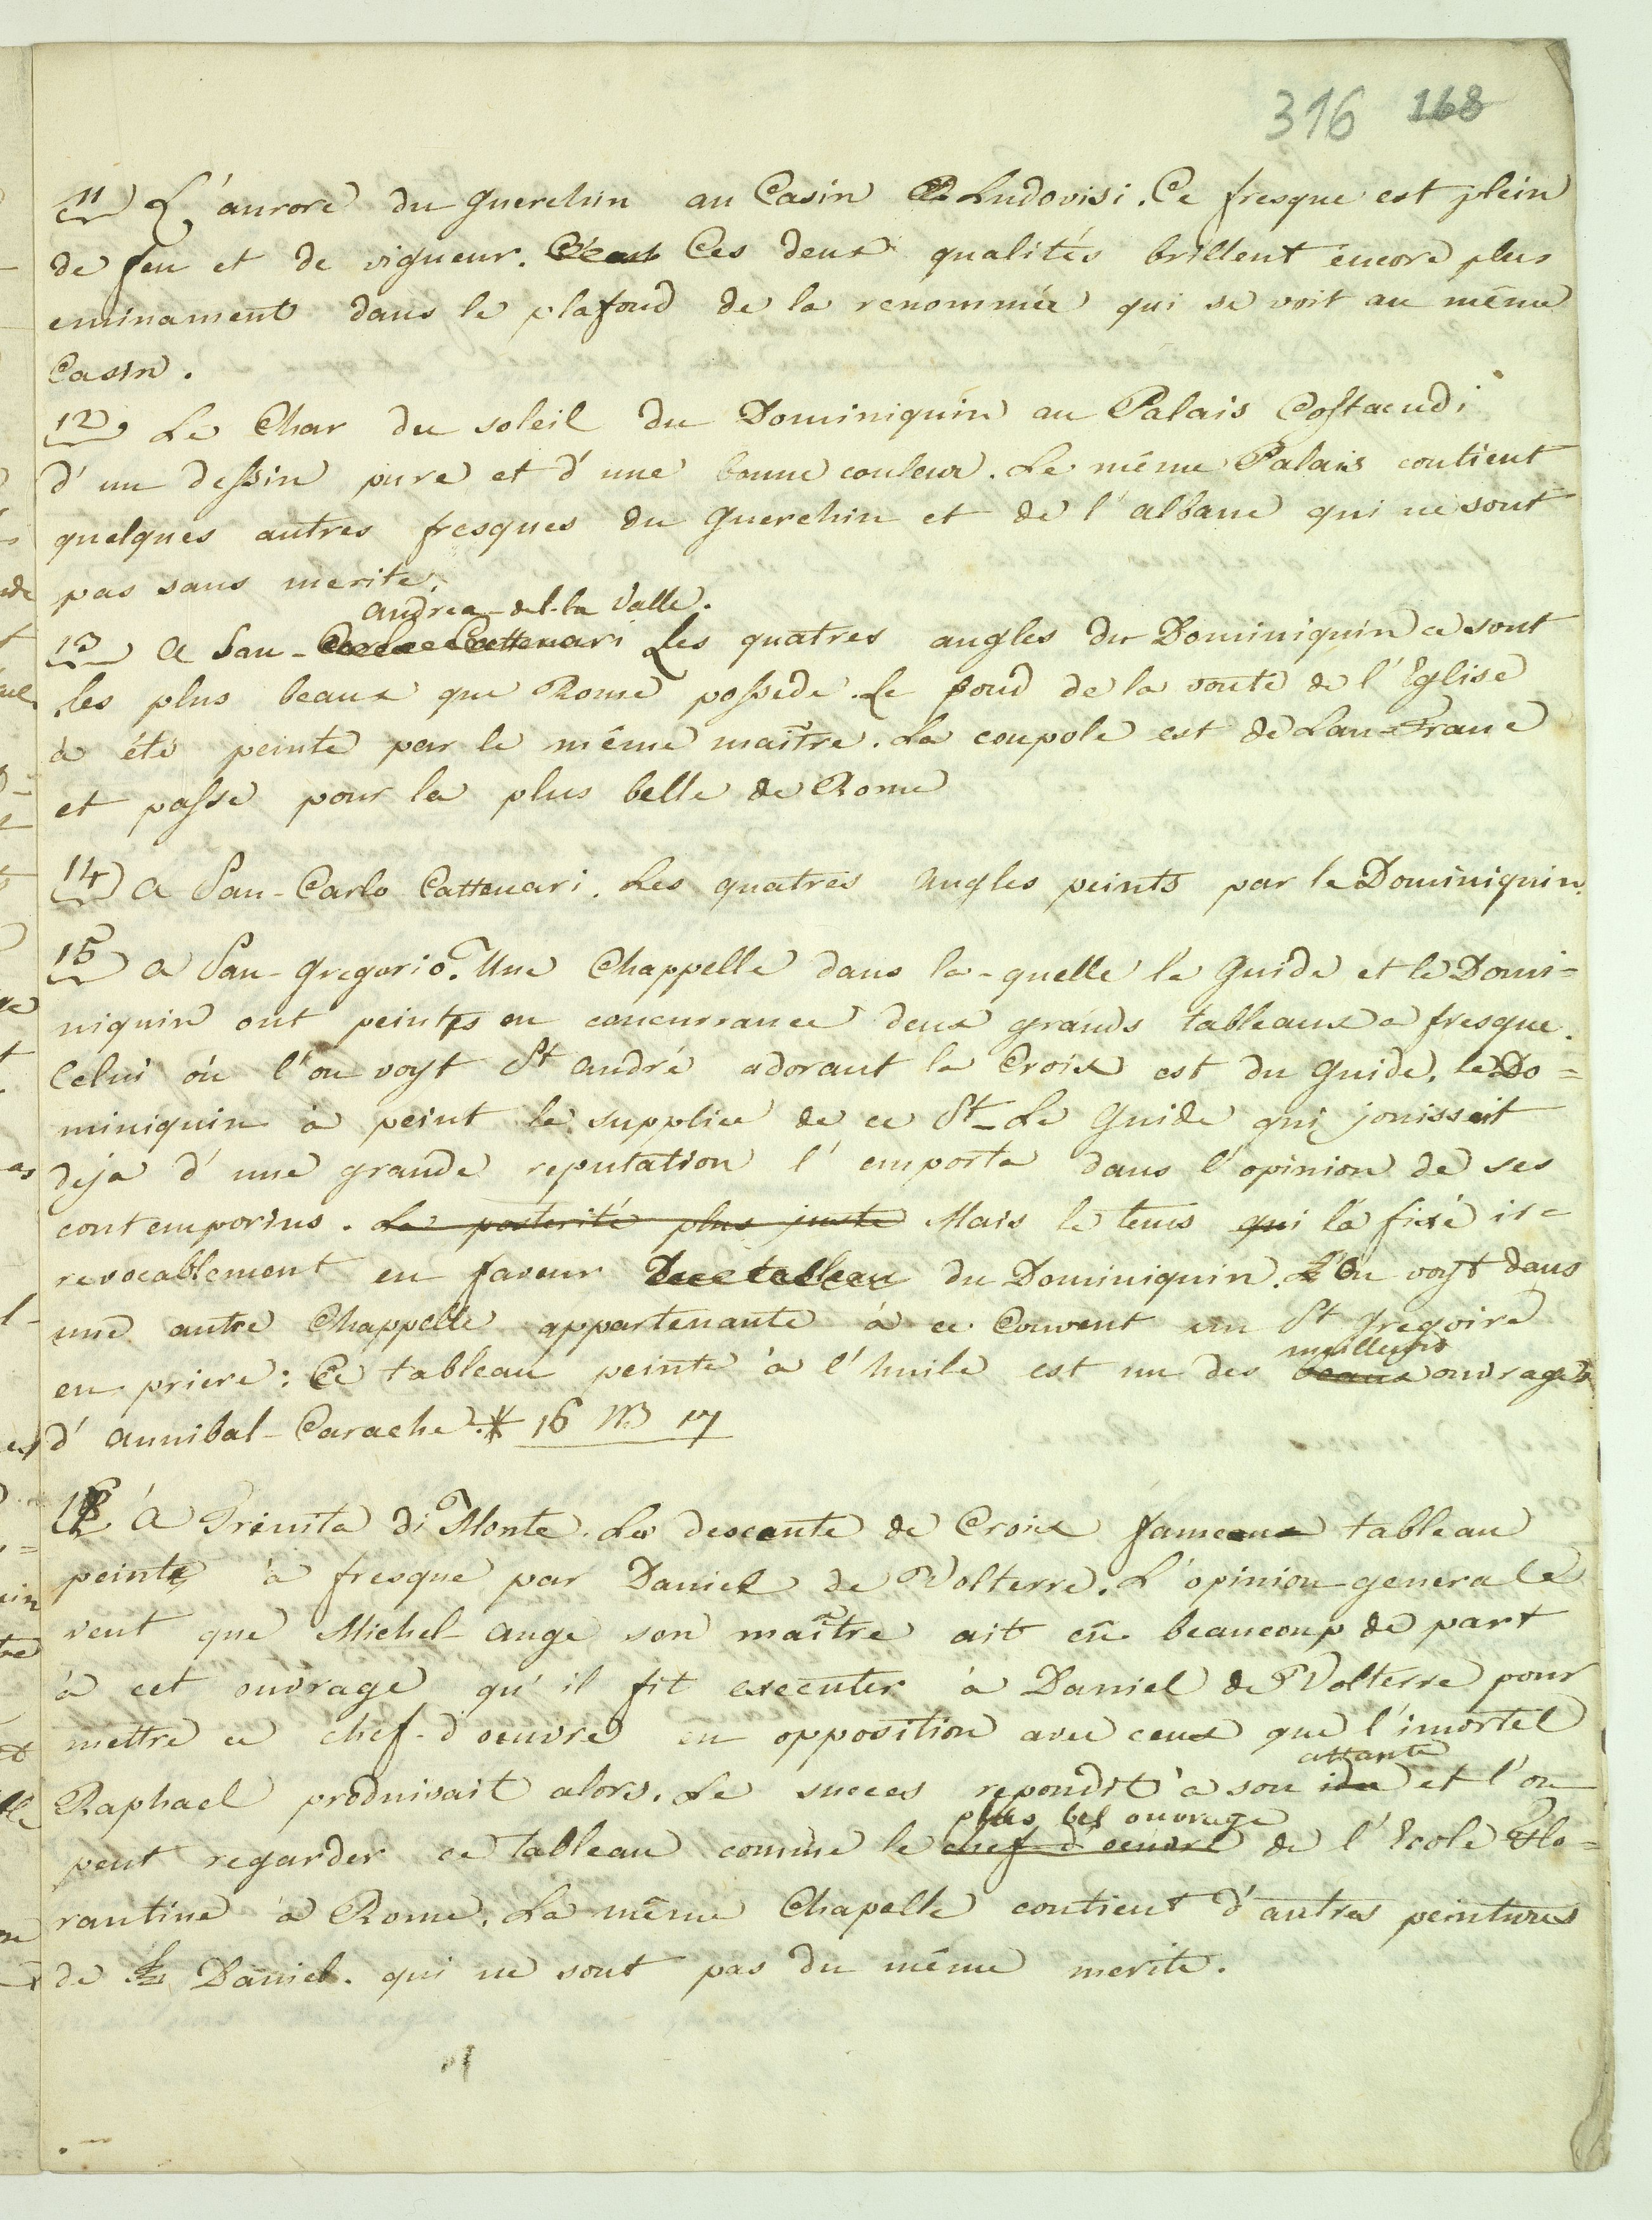 316 168
11 L'aurore du Guerchin au Casin Ludovisi. Ce fresque est plein
de feu et de vigueur. Ces deux qualités brillent éncore plus
eminament dans le plafond de la renommée qui se voit au même
Casin.
12. Le Char du soleil du Dominiquin au Palais Costacudi
d'un dessin pure et d'une bonne couleur. Le même Palais contient
quelques autres fresques du Guerchin et de l'albane qui ne sont
pas sans merite.
andréa-del-la Valle.
13 A San-Carlo Cattenari Les quatres angles du Dominiquin ce sont
les plus beaux que Rome possede. Le fond de la voute de l'Eglise
à été peinte par le même maître. La coupole est de Lan-Franc
et passe pour la plus belle de Rome
14 A San-Carlo Cattenari. Les quatres angles peints par le Dominiquin.
15 A San-Gregorio. Une Chappelle dans la-quelle le Guide et le Domi=
niquin ont peints en concurrance deux grands tableaux a fresque.
Celui où l'on voyt St André adorant la Croix est du Guide. le Do=
miniquin à peint le supplice de ce St_ Le Guide qui jouissait
deja d'une grande reputation l'emporta dans l'opinion de ses
contemporins. La posterité plus juste Mais le tems qui la fixé ir=
revocablement en faveur Du tableau du Dominiquin. L'On voyt dans
une autre Chappelle appartenante à ce Couvent un St Gregoire
meilleurs
en priere: Ce tableau peinte à l'huile est un des beaux ouvrages
d'Annibal-Carache.* 16 NB 17
18 À Trinita di Monte. La descente de Croix fameux tableau
peinte à fresque par Daniel de Volterre. L'opinion generale
veut que Michel-Ange son maître ait eû beaucoup de part
à cet ouvrage qu'il fit executer à Daniel de Volterre pour
mettre ce chef-d'oeuvre en opposition avec ceux que l'imortel
attante
Raphael produisait alors. Le succes repondit à son et l'on
plus bel ouvrage
peut regarder ce tableau comme le chef d'oeuvre de l'Ecole Flo=
rantine à Rome. La même Chapelle contient d'autres peintures
de Daniel. qui ne sont pas du même merite.